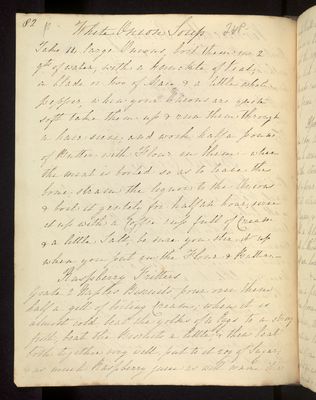 82
White Onion Soup 248
Take 12 large Onions, boil them in 2
qts of water, with a knuckle of Veal,
a blade or two of Mace & a little white
pepper, when your Onions are quite
soft take them up & rub them through
a hair sieve, and work half a pound
of Butter with Flour in them, when
the meat is boiled so as to leave the
bone, strain the liquor to the Onions
& boil it gently for half an hour, serve
it up with a Coffee cup full of Cream
& a little Salt, be sure you stir it up
when you put in the Flour & Butter
Raspberry Fritters
Grate 2 Naples Biscuits, pour over them
half a gill of boiling Cream, when it is
almost cold beat the yolks of 4 Eggs to a strong
froth, beat the Biscuits a little, & then beat
both together very well, put to it 2 oz of Sugar,
& as much Raspberry juice as will make it a